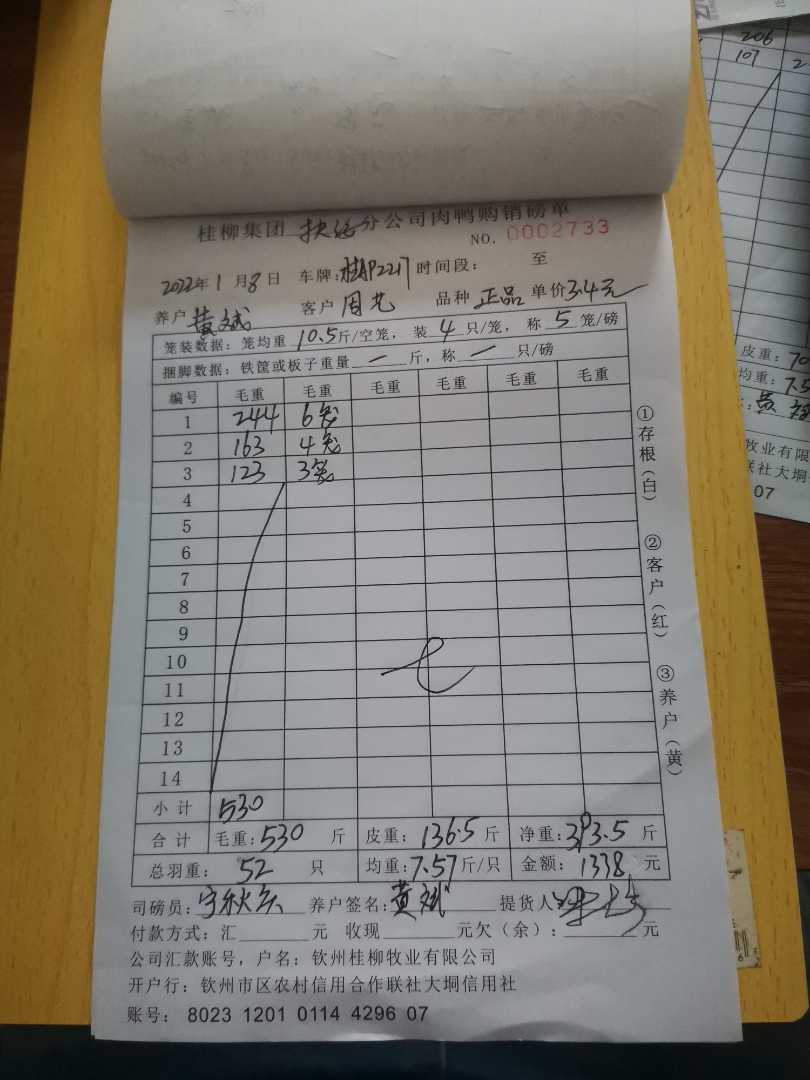 桂柳集团 扶绥 分公司肉鸭购销磅单
NO. 0002733
2022年1月8日 车牌: 时间段: 至
养户 黄斌 客户 周艺 品种 正品 单价3.4元
笼装数据: 笼均重 10.5 斤/空笼, 装 4 只/笼, 称 5 笼/磅
捆脚数据: 铁筐或板子重量 一 斤, 称 一 只/磅
编号 毛重 毛重 毛重 毛重 毛重 毛重
1 244 6笼
2 163 4笼
3 123 3笼
4
5
6
7
8
9
10
11
12
13
14
小计 530
合计 毛重: 530 斤 皮重: 136.5 斤 净重: 393.5 斤
总羽重: 52 只 均重: 7.57 斤/只 金额: 1338 元
司磅员: 养户签名: 黄斌 提货人
付款方式: 汇 元 收现 元欠(余): 元
公司汇款账号, 户名: 钦州桂柳牧业有限公司
开户行: 钦州市区农村信用合作联社大垌信用社
账号: 8023 1201 0114 4296 07
①存根(白)
②客户(红)
③养户(黄)
206
107
皮重: 70
均重: 7.5
黄斌
牧业有限
联社大垌
07